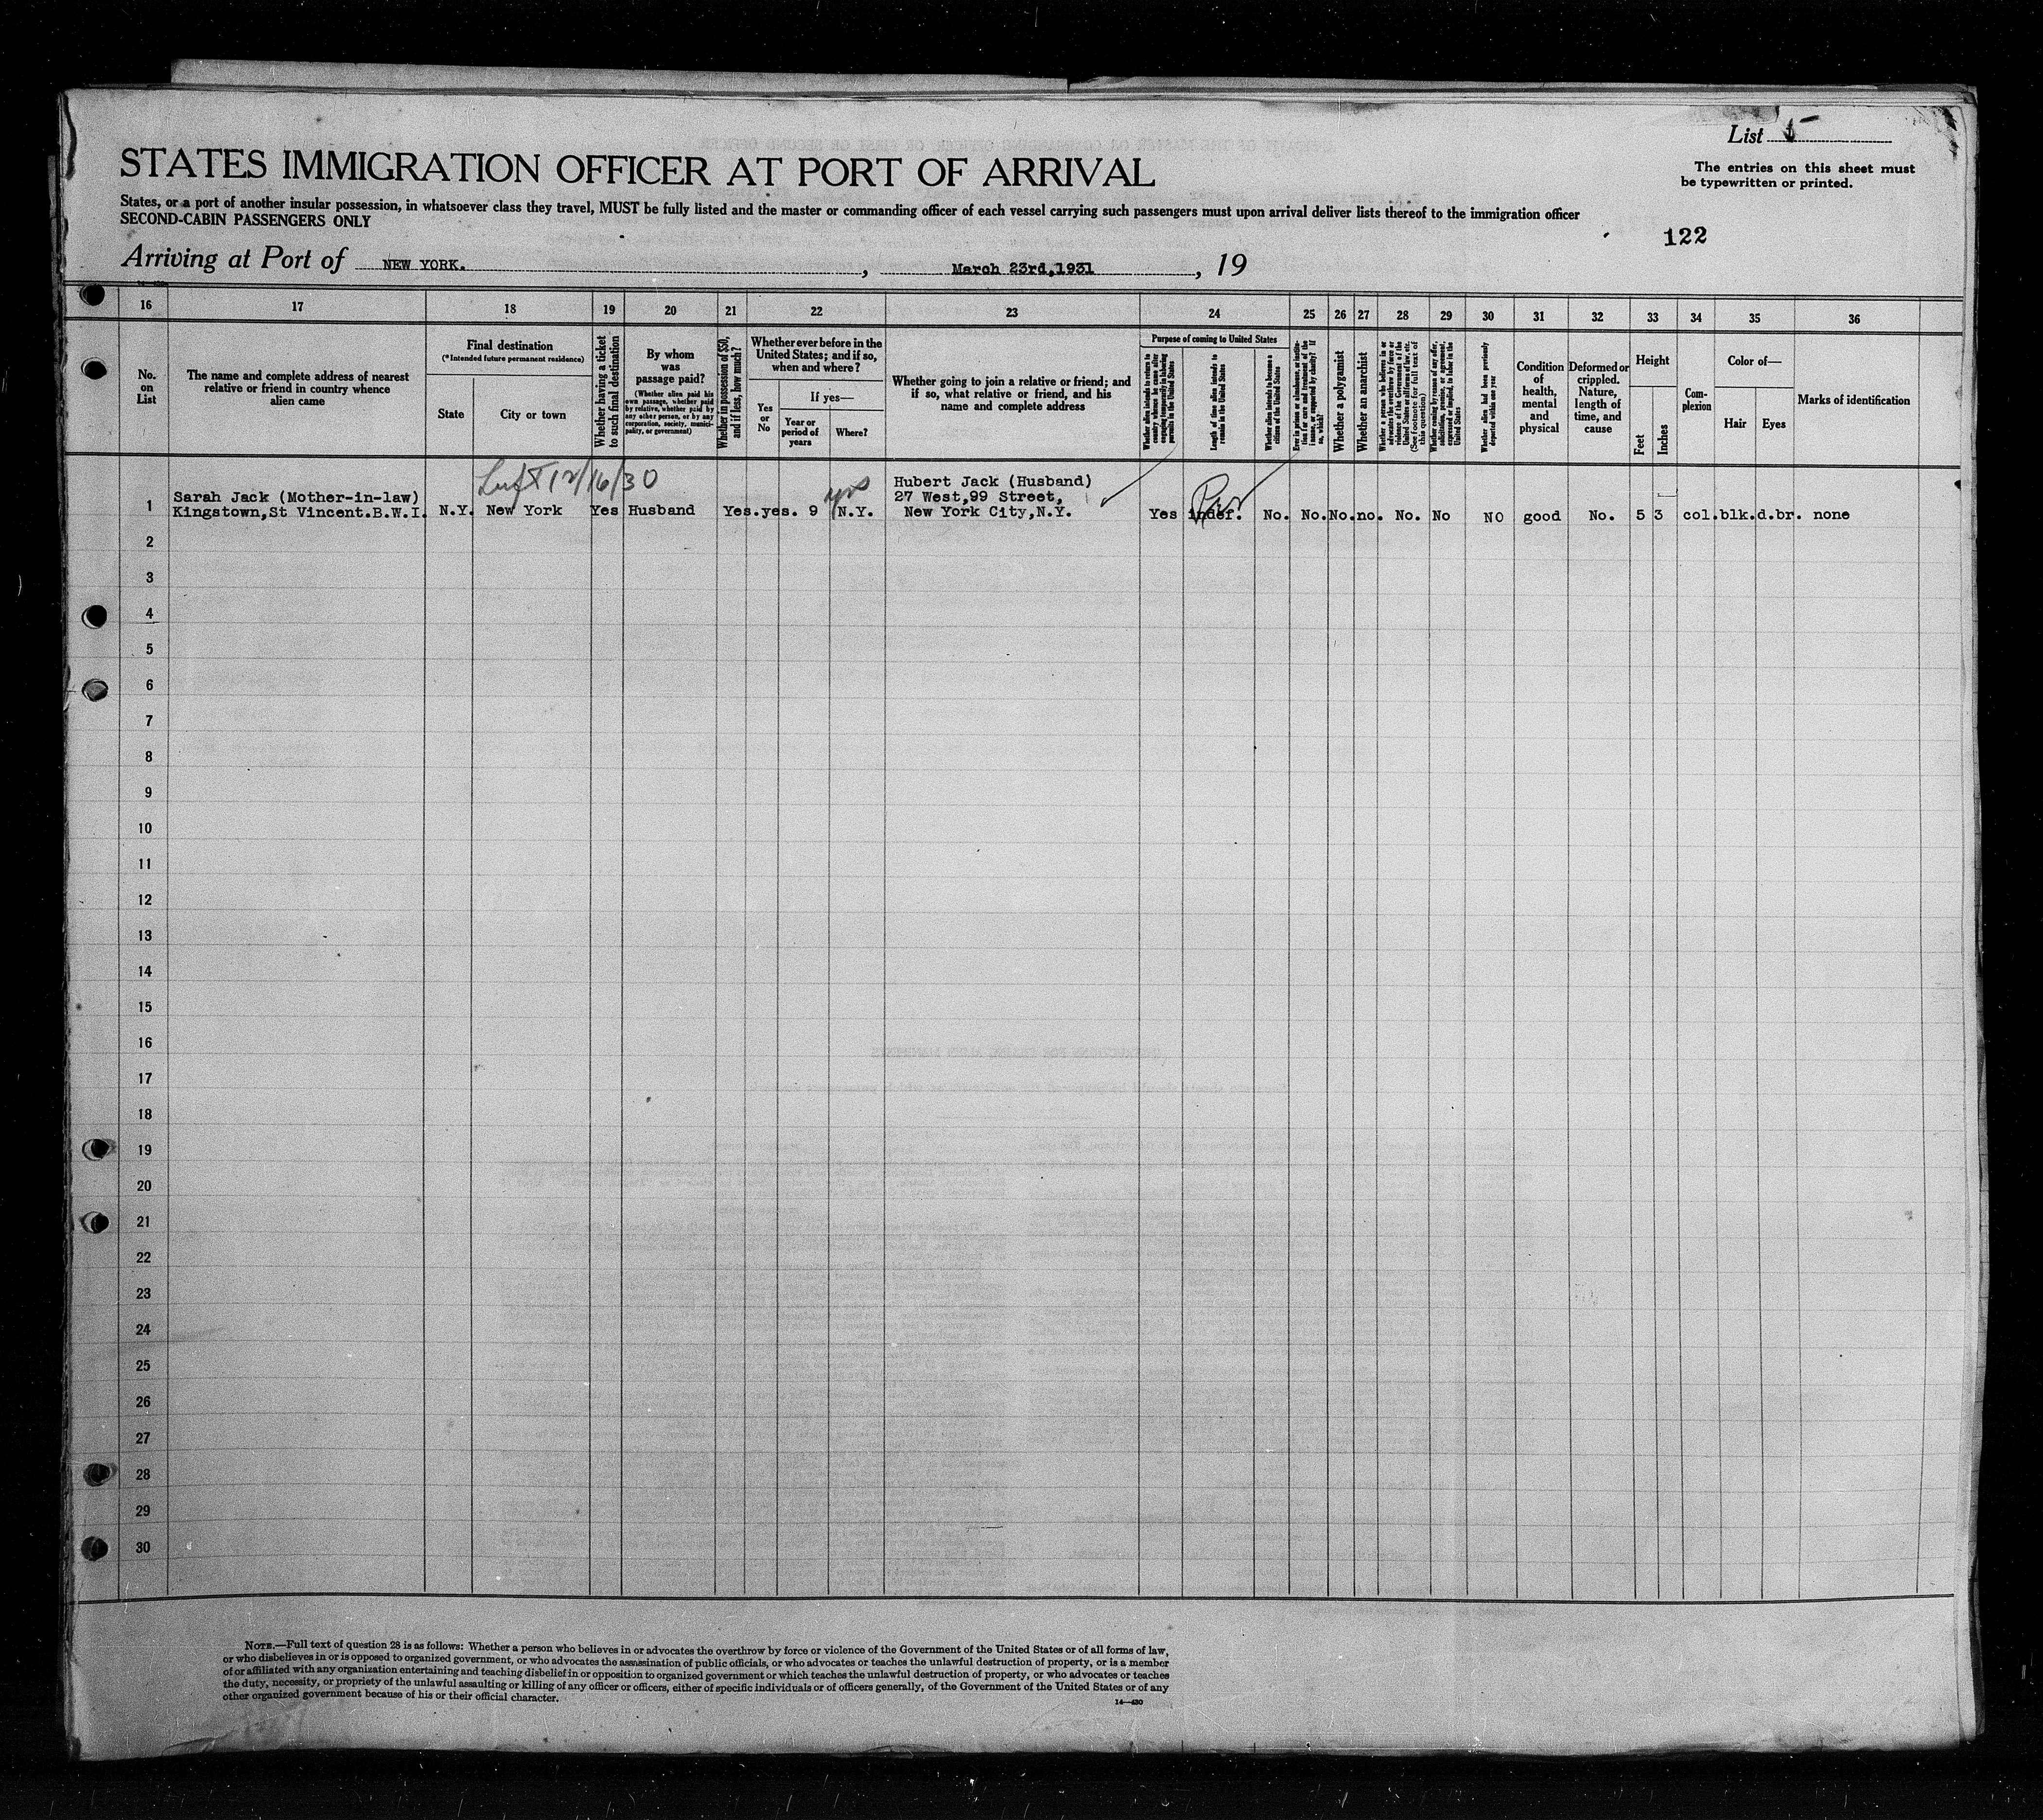 List 5
STATES IMMIGRATION OFFICER AT PORT OF ARRIVAL
The entries on this sheet must
be typewritten or printed.
States, or a port of another insular possession, in whatsoever class they travel, MUST be fully listed and the master or commanding officer of each vessel carrying such passengers must upon arrival deliver lists thereof to the immigration officer
SECOND-CABIN PASSENGERS ONLY
122
Arriving at Port of NEW YORK. , March 23rd,1931 , 19
16 17 18 19 20 21 22 23 24 25 26 27 28 29 30 31 32 33 34 35 36
No.
on
List
The name and complete address of nearest
relative or friend in country whence
alien came
Final destination
(*Intended future permanent residence)
State
City or town
Whether having a ticket
to such final destination
By whom
was
passage paid?
(Whether alien paid his
own passage, whether paid
by relative, whether paid by
any other person, or by any
corporation, society, munici-
pality, or government)
Whether in possession of $50,
and if less, how much?
Whether ever before in the
United States; and if so,
when and where?
Yes
or
No
If yes—
Year or
period of
years
Where?
Whether going to join a relative or friend; and
if so, what relative or friend, and his
name and complete address
Purpose of coming to United States
Whether alien intends to return to
country whence he came after
engaging temporarily in laboring
pursuits in the United States
Length of time alien intends to
remain in the United States
Whether alien intends to become a
citizen of the United States
Ever in prison or almshouse, or institu-
tion for care and treatment of the
insane, or supported by charity? If
so, which?
Whether a polygamist
Whether an anarchist
Whether a person who believes in or
advocates the overthrow by force or
violence of the Government of the
United States or all forms of law, etc.
(See footnote for full text of
this question)
Whether coming by reason of any offer,
solicitation, promise, or agreement,
expressed or implied, to labor in the
United States
Whether alien had been previously
deported within one year
Condition
of
health,
mental
and
physical
Deformed or
crippled.
Nature,
length of
time, and
cause
Height
Feet
Inches
Com-
plexion
Color of—
Hair
Eyes
Marks of identification
Left 12/16/30
yrs
Hubert Jack (Husband)
Sarah Jack (Mother-in-law)
27 West,99 Street,
1 Kingstown,St Vincent.B.W.I. N.Y. New York Yes Husband Yes.yes. 9 N.Y. New York City,N.Y. Yes indef. No. No. No. no. No. No NO good No. 5 3 col.blk.d.br. none
2
3
4
5
6
7
8
9
10
11
12
13
14
15
16
17
18
19
20
21
22
23
24
25
26
27
28
29
30
NOTE.—Full text of question 28 is as follows: Whether a person who believes in or advocates the overthrow by force or violence of the Government of the United States or of all forms of law,
or who disbelieves in or is opposed to organized government, or who advocates the assassination of public officials, or who advocates or teaches the unlawful destruction of property, or is a member
of or affiliated with any organization entertaining and teaching disbelief in or opposition to organized government or which teaches the unlawful destruction of property, or who advocates or teaches
the duty, necessity, or propriety of the unlawful assaulting or killing of any officer or officers, either of specific individuals or of officers generally, of the Government of the United States or of any
other organized government because of his or their official character.
14—430